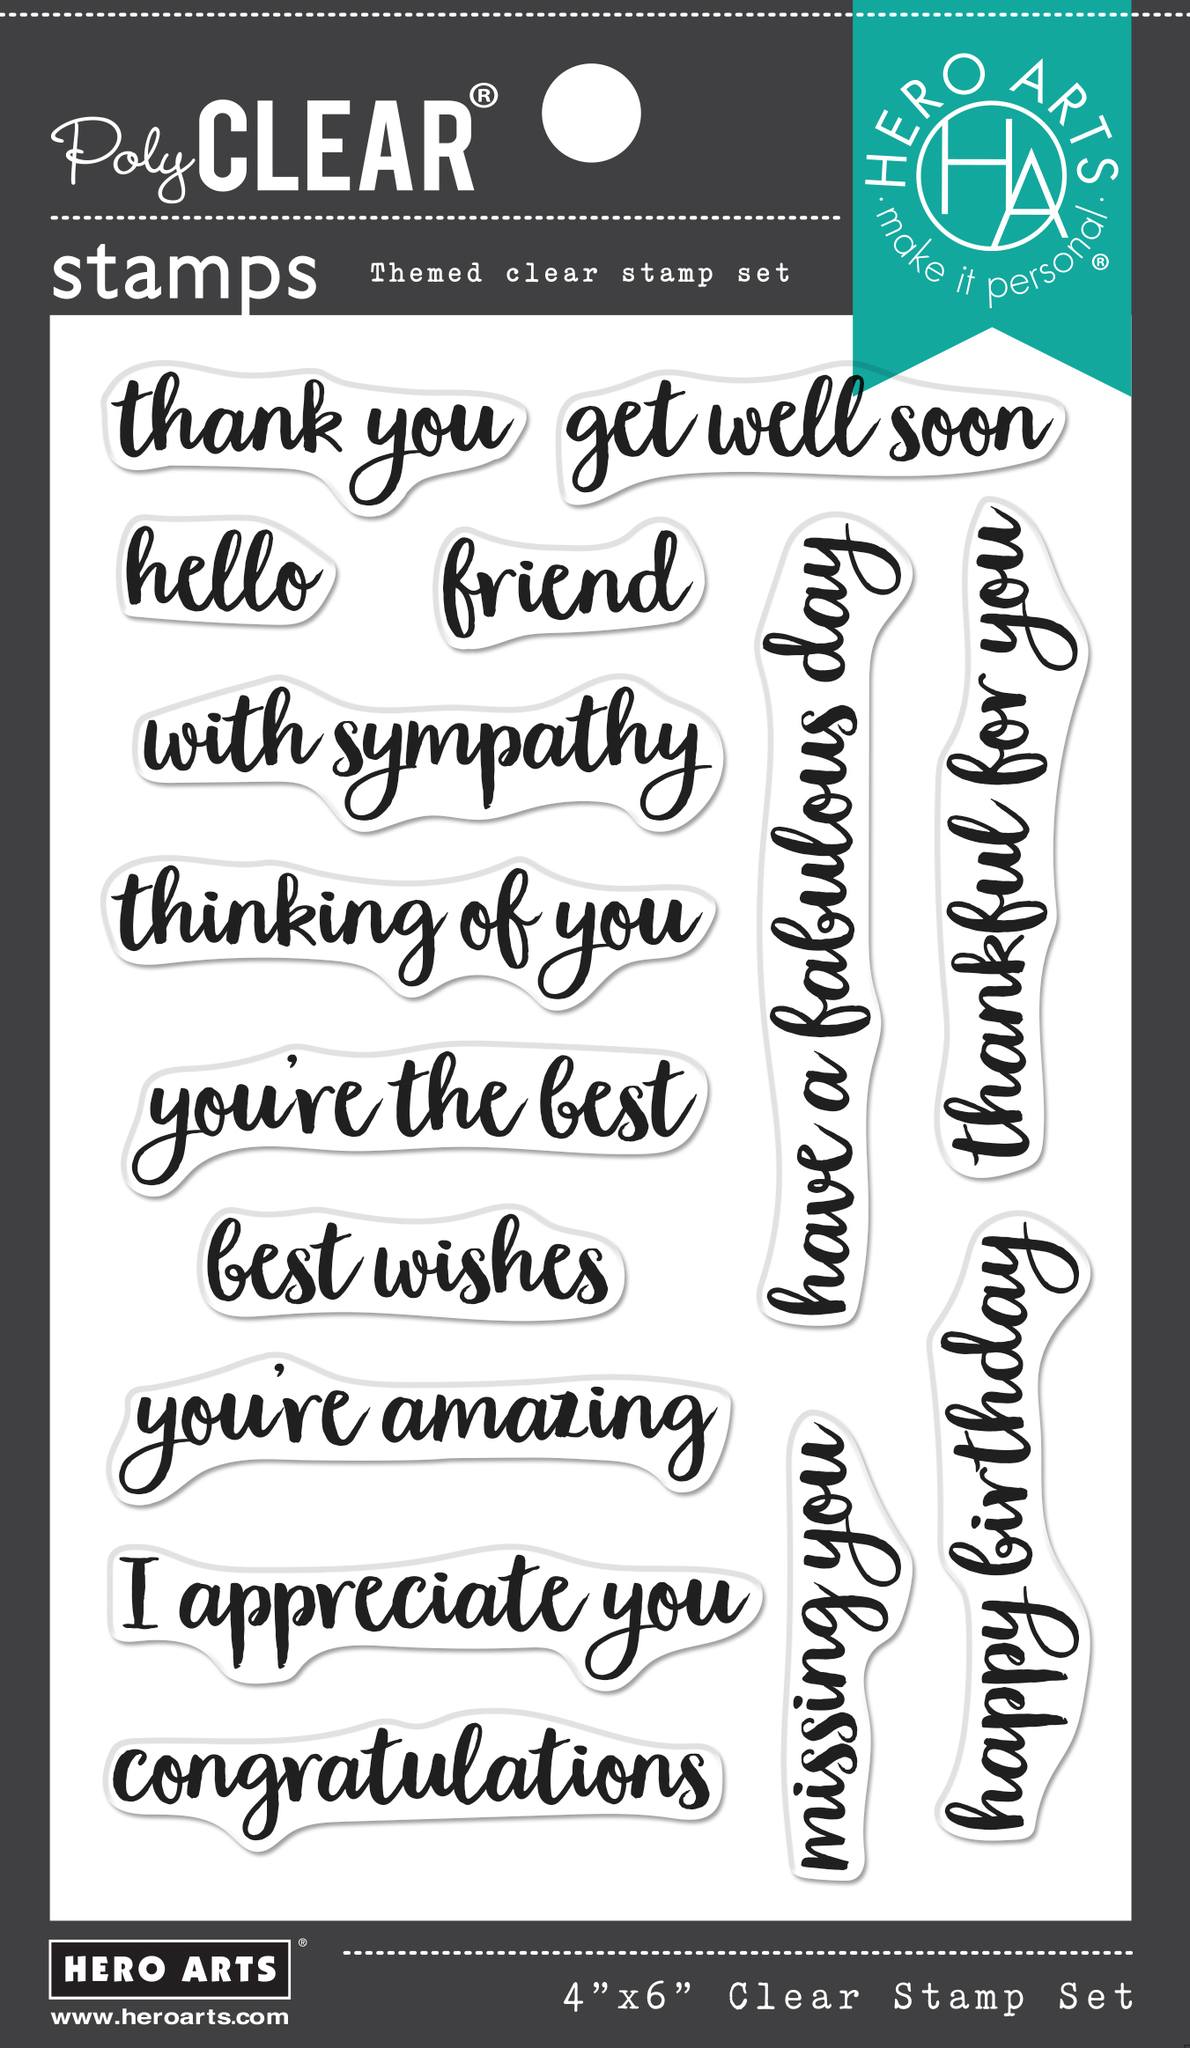 PolyCLEAR®
stamps
Themed clear stamp set
HERO ARTS
HA
·make it personal·®
thank you
get well soon
hello
friend
with sympathy
thinking of you
you're the best
best wishes
you're amazing
I appreciate you
congratulations
have a fabulous day
thankful for you
missing you
happy birthday
HERO ARTS®
www.heroarts.com
4”x6” Clear Stamp Set